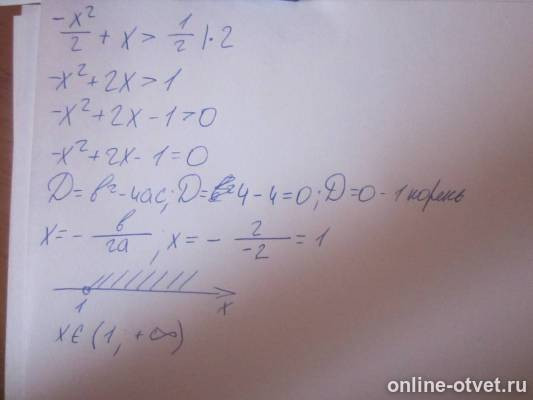 -x²/2 + x > 1/2 |·2
-x² + 2x > 1
-x² + 2x - 1 > 0
-x² + 2x - 1 = 0
D = в² - 4ас; D = 4 - 4 = 0; D = 0 - 1 корень
x = - в/2а; x = - 2/-2 = 1
1 x
x ∈ (1; +∞)
online-otvet.ru